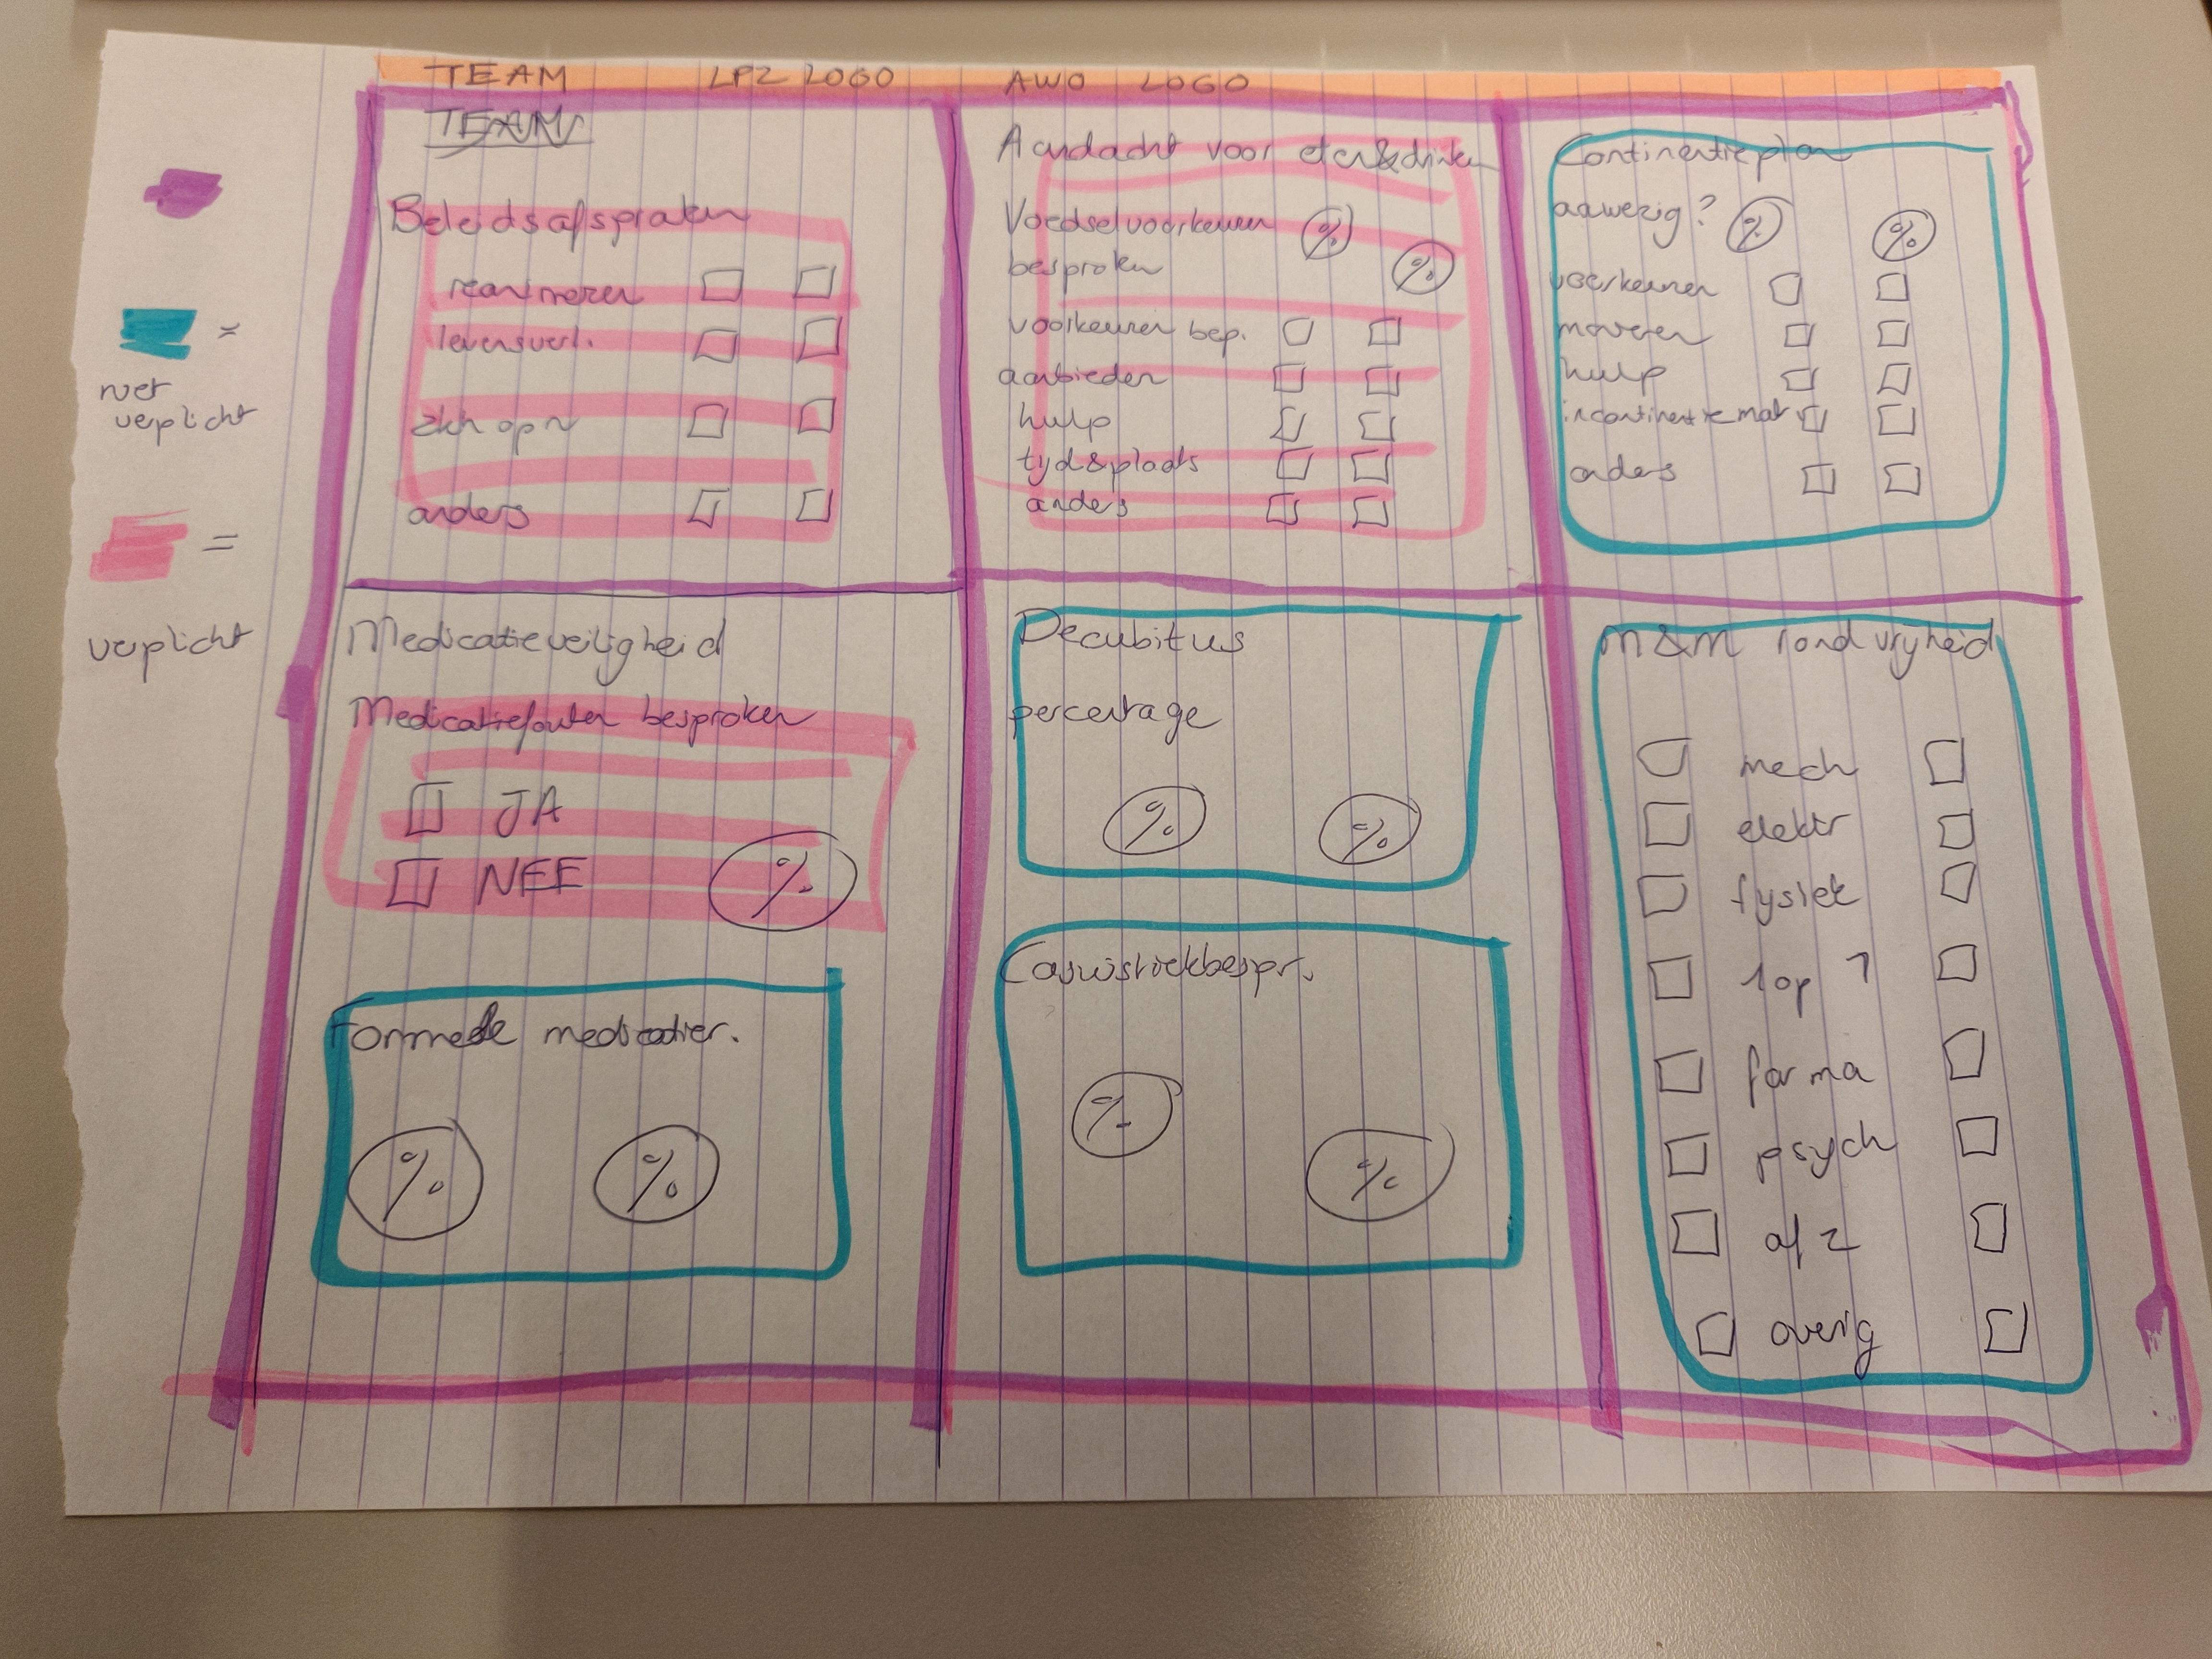 TEAM LPZ LOGO AWO LOGO
TEAM
Beleidsafspraken
reanimeren
levensverl.
zkh opn
anders
Aandacht voor eten&drinken
Voedselvoorkeuren %
besproken %
voorkeuren bep.
aanbieden
hulp
tijd&plaats
anders
Continentieplan
aawezig? % %
voorkeuren
hulp
incontinentiemat
anders
=
niet
verplicht
=
verplicht
Medicatieveiligheid
Medicatiefouten besproken
JA
NEE %
Formele medicatier.
% %
Decubitus
percentage
% %
Casuistiekbespr.
%
%
M&M rond vrijheid
mech
elektr
fysiek
1op1
farma
psych
afz
overig